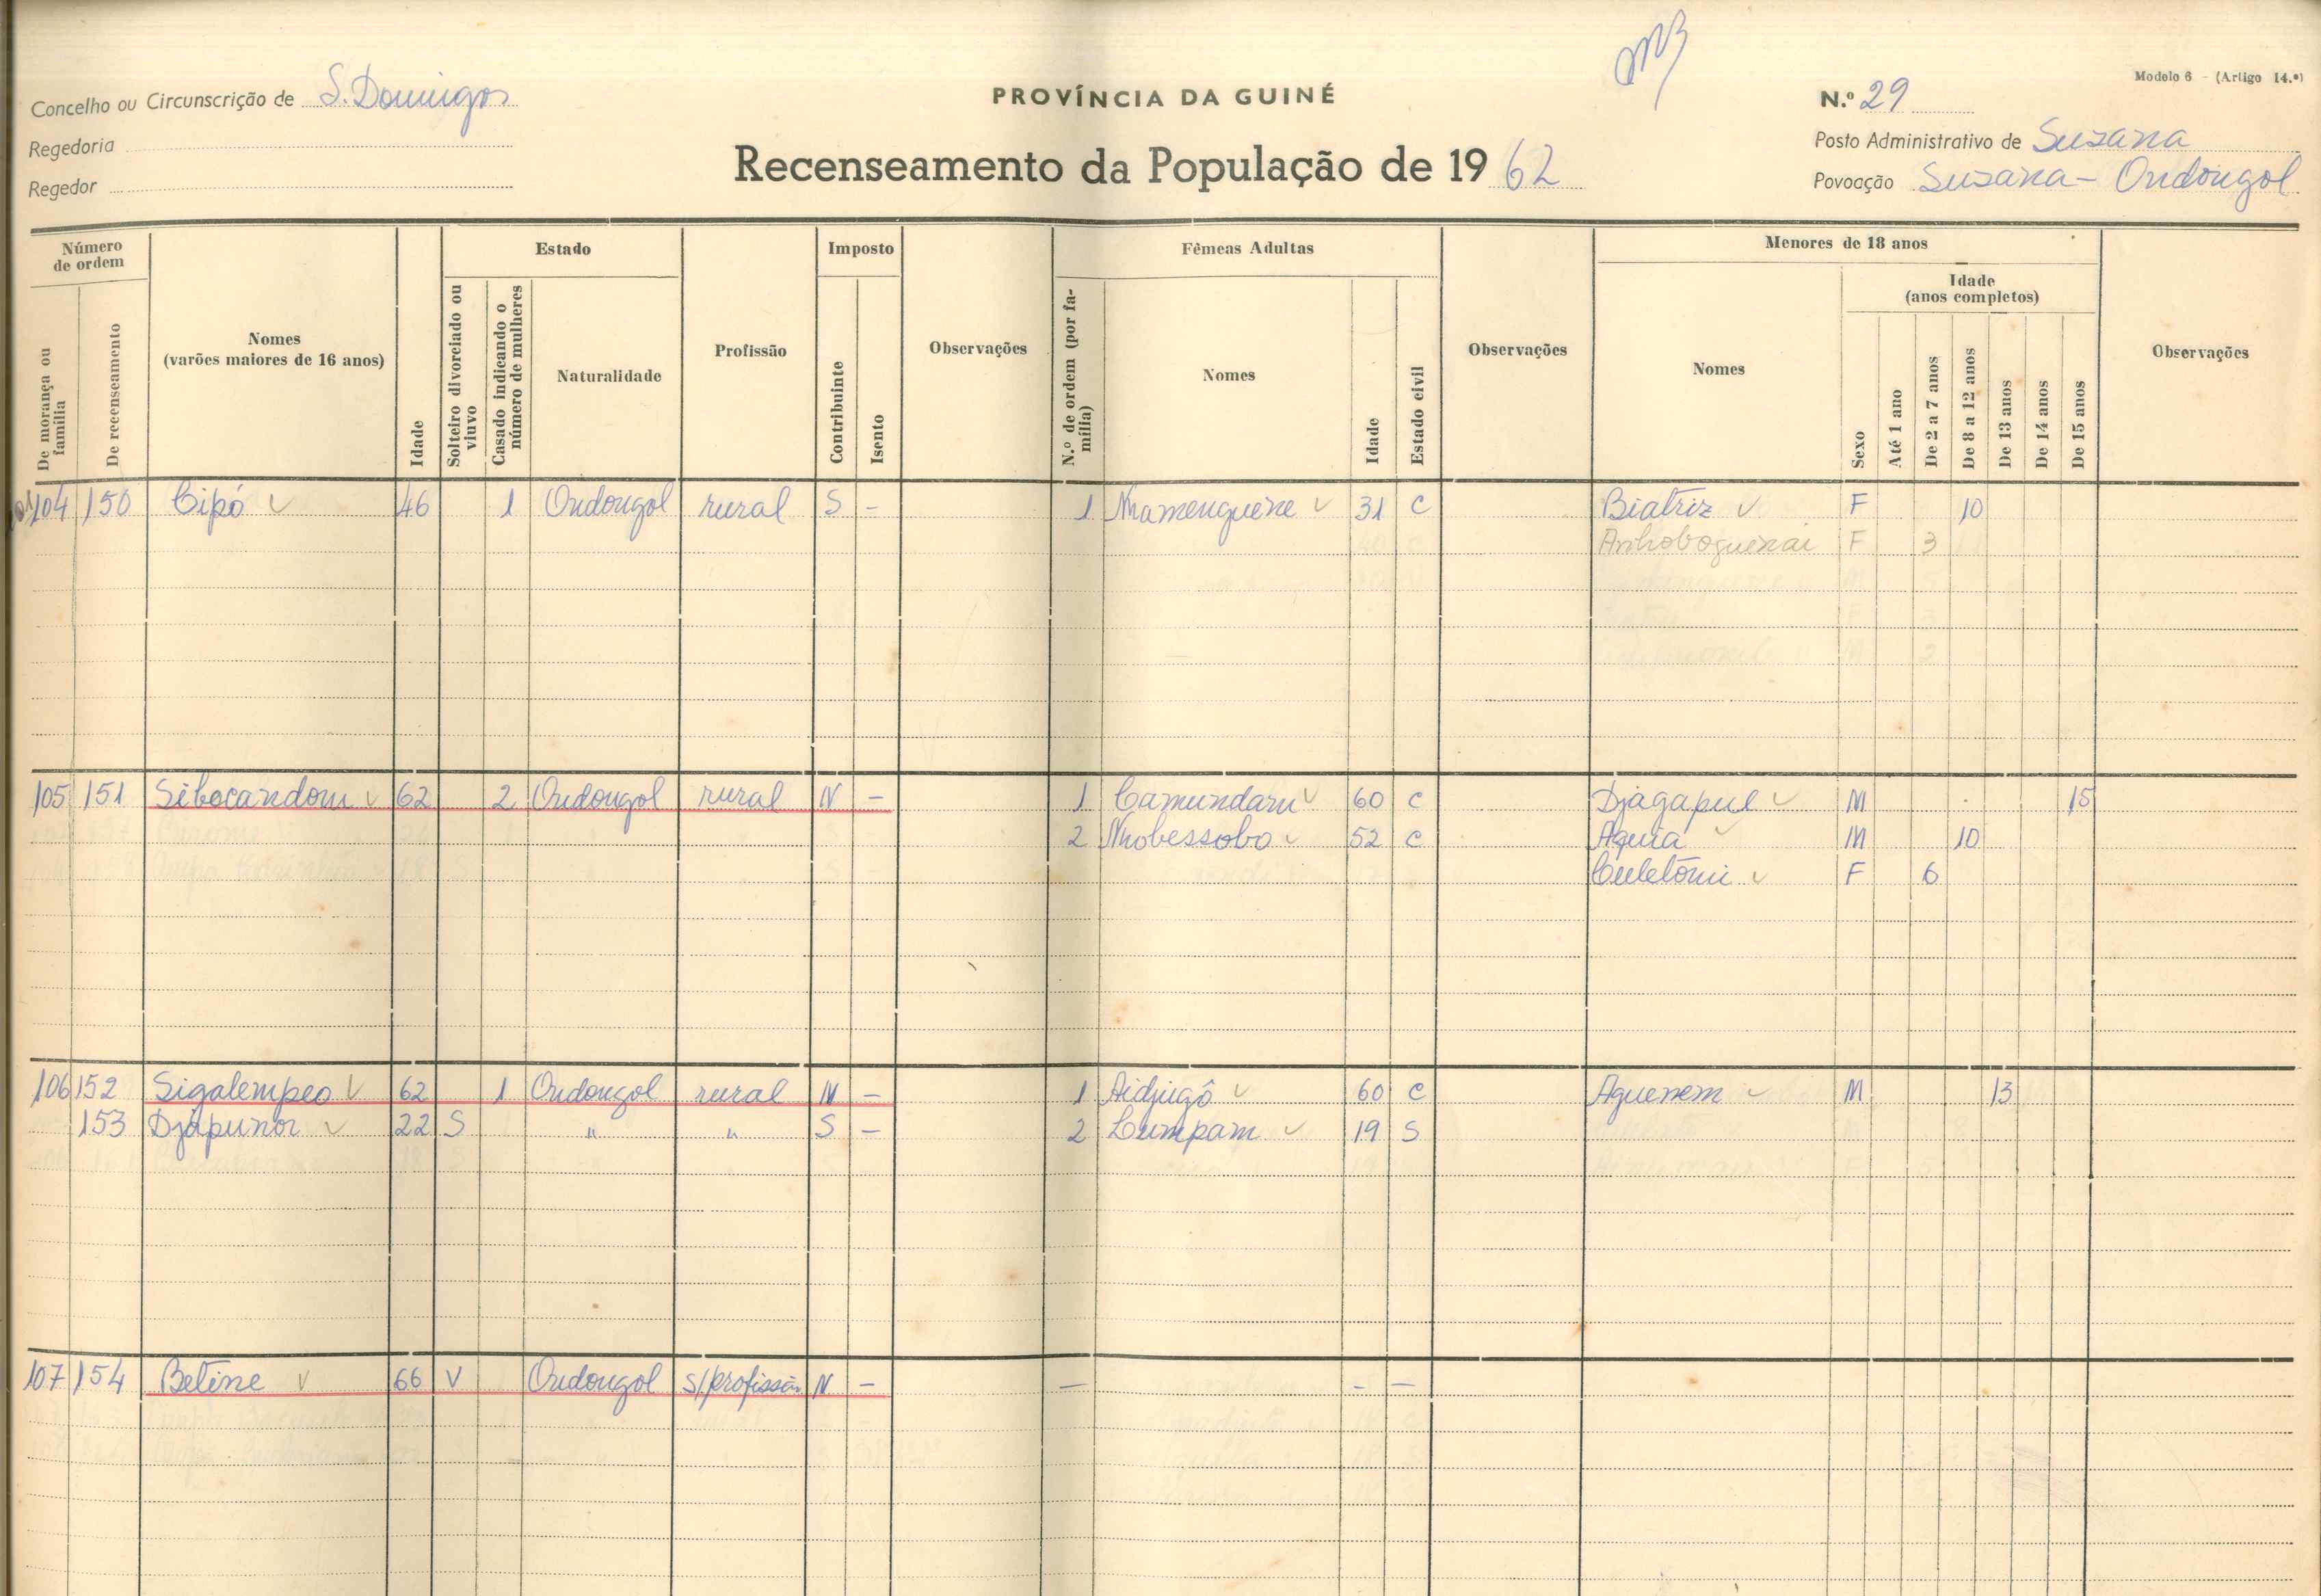 Modelo 6 - (Artigo 14.º)
Concelho ou Circunscrição de S. Domingos
PROVÍNCIA DA GUINÉ
N.º 29
Regedoria
Recenseamento da População de 1962
Posto Administrativo de Suzana
Regedor
Povoação Suzana - Ondongol
Número de ordem
Estado
Imposto
Fêmeas Adultas
Menores de 18 anos
De morança ou família
De recenseamento
Nomes
(varões maiores de 16 anos)
Idade
Solteiro divorciado ou viuvo
Casado indicando o número de mulheres
Naturalidade
Profissão
Contribuinte
Isento
Observações
N.º de ordem (por família)
Nomes
Idade
Estado civil
Observações
Nomes
Sexo
Idade
(anos completos)
Até 1 ano
De 2 a 7 anos
De 8 a 12 anos
De 13 anos
De 14 anos
De 15 anos
Observações
104 150 Cipó 46 1 Ondongol rural S - 1 Nhamenguene 31 C Biatriz F 10
Anhoboguenai F 3
105 151 Sibocandom 62 2 Ondongol rural N - 1 Camundam 60 C Djagapul M 15
2 Nhobessobo 52 C Aquia M 10
Culetôni F 6
106 152 Sigalempeo 62 1 Ondongol rural N - 1 Aidjugô 60 C Aguenem M 13
153 Djápunor 22 S " " S - 2 Lumpam 19 S
107 154 Betine 66 V Ondongol s/profissão N - - - -